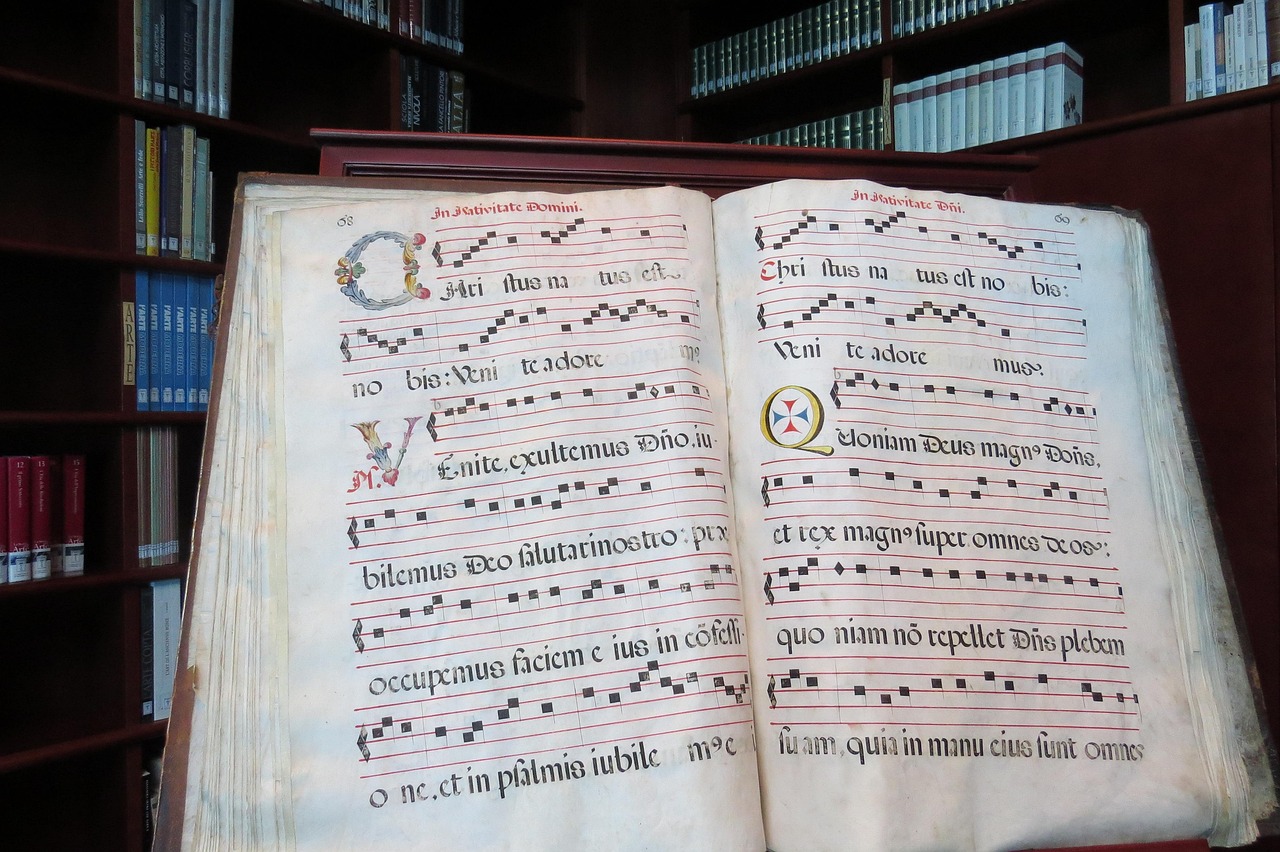 68
In Nativitate Domini.
CHri stus na tus est
no bis: Veni te adore m9
Ps. VEnite, exultemus Dño. iu-
bilemus Deo salutari nostro: præ
occupemus faciem e ius in cõfessi-
o ne, et in psalmis iubile m9 e
In Nativitate Dñi.
69
Chri stus na tus est no bis:
Veni te adore mus.
QUoniam Deus magn9 Dõns,
et rex magn9 super omnes deos:
quo niam nõ repellet Dñs plebem
su am, quia in manu eius sunt omnes
ARTE
L'ARTE
L'ARTE
L'ARTE
L'ARTE
L'ARTE
12
13
15